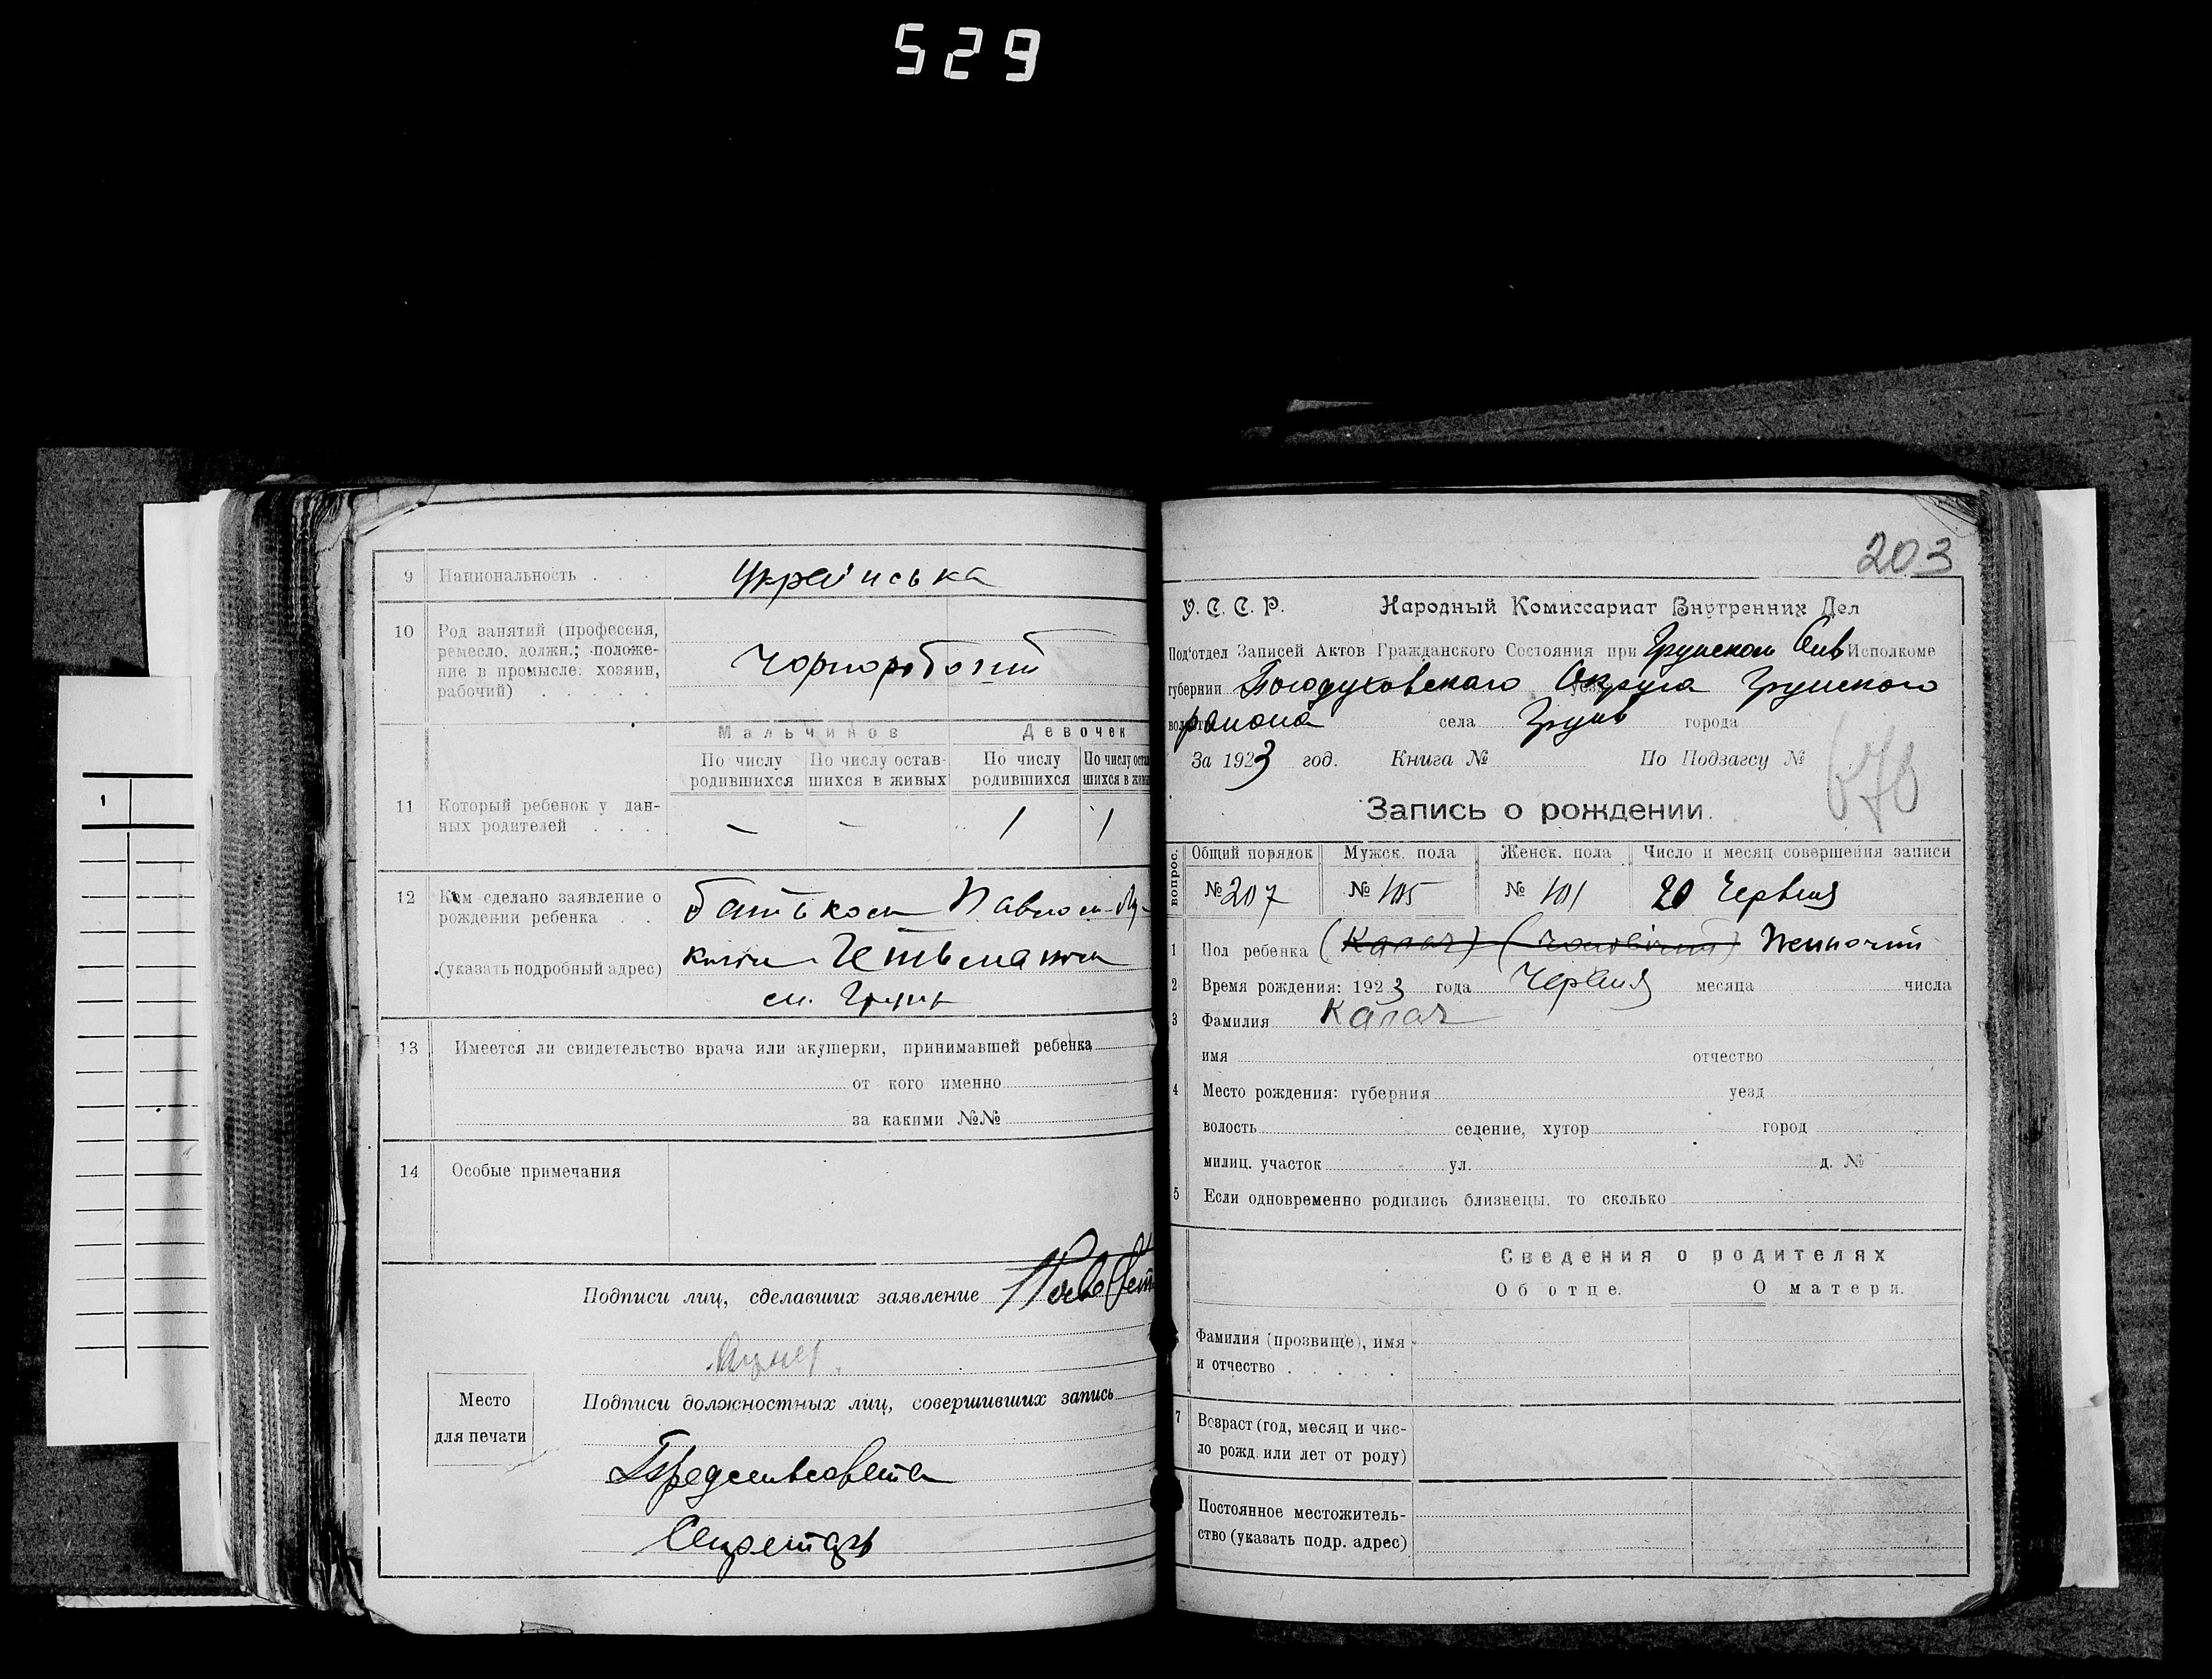 529
9 Национальность . . . Українська
10 Род занятий (профессия,
ремесло, должн.; положе-
ние в промысле: хозяин,
рабочий) . . . . .
Чорноробочий
Мальчиков Девочек
По числу родившихся По числу остав-шихся в живых По числу родившихся По числу остав-шихся в живых
11 Который ребенок у дан-
ных родителей . . . — — 1 1
12 Кем сделано заявление о
рождении ребенка . .
(указать подробный адрес)
батьком Павлом Лу-
кичем Гетьманом
см. Грунь
13 Имеется ли свидетельство врача или акушерки, принимавшей ребенка
от кого именно
за какими №№
14 Особые примечания
Подписи лиц, сделавших заявление
Подписи должностных лиц, совершивших запись
Место
для печати
Предсельсовета
Секретарь
203
У. С. С. Р. Народный Комиссариат Внутренних Дел
Под'отдел Записей Актов Гражданского Состояния при Грунском Исполкоме
губернии Богодуховского Округа Грунского
района села Грунь города
За 1923 год. Книга № По Подзагсу № 670
Запись о рождении.
вопрос. Общий порядок Мужск. пола Женск. пола Число и месяц совершения записи
№ 207 № 105 № 101 20 Червня
1 Пол ребенка (Калач) (чоловічий) Жиночий
2 Время рождения: 1923 года Червня месяца числа
3 Фамилия Калач
имя отчество
4 Место рождения: губерния уезд
волость селение, хутор город
милиц. участок ул. д. №
5 Если одновременно родились близнецы, то сколько
Сведения о родителях
Об отце. О матери.
Фамилия (прозвище), имя
и отчество . . . . .
7 Возраст (год, месяц и чис-
ло рожд. или лет от роду)
Постоянное местожитель-
ство (указать подр. адрес)
1